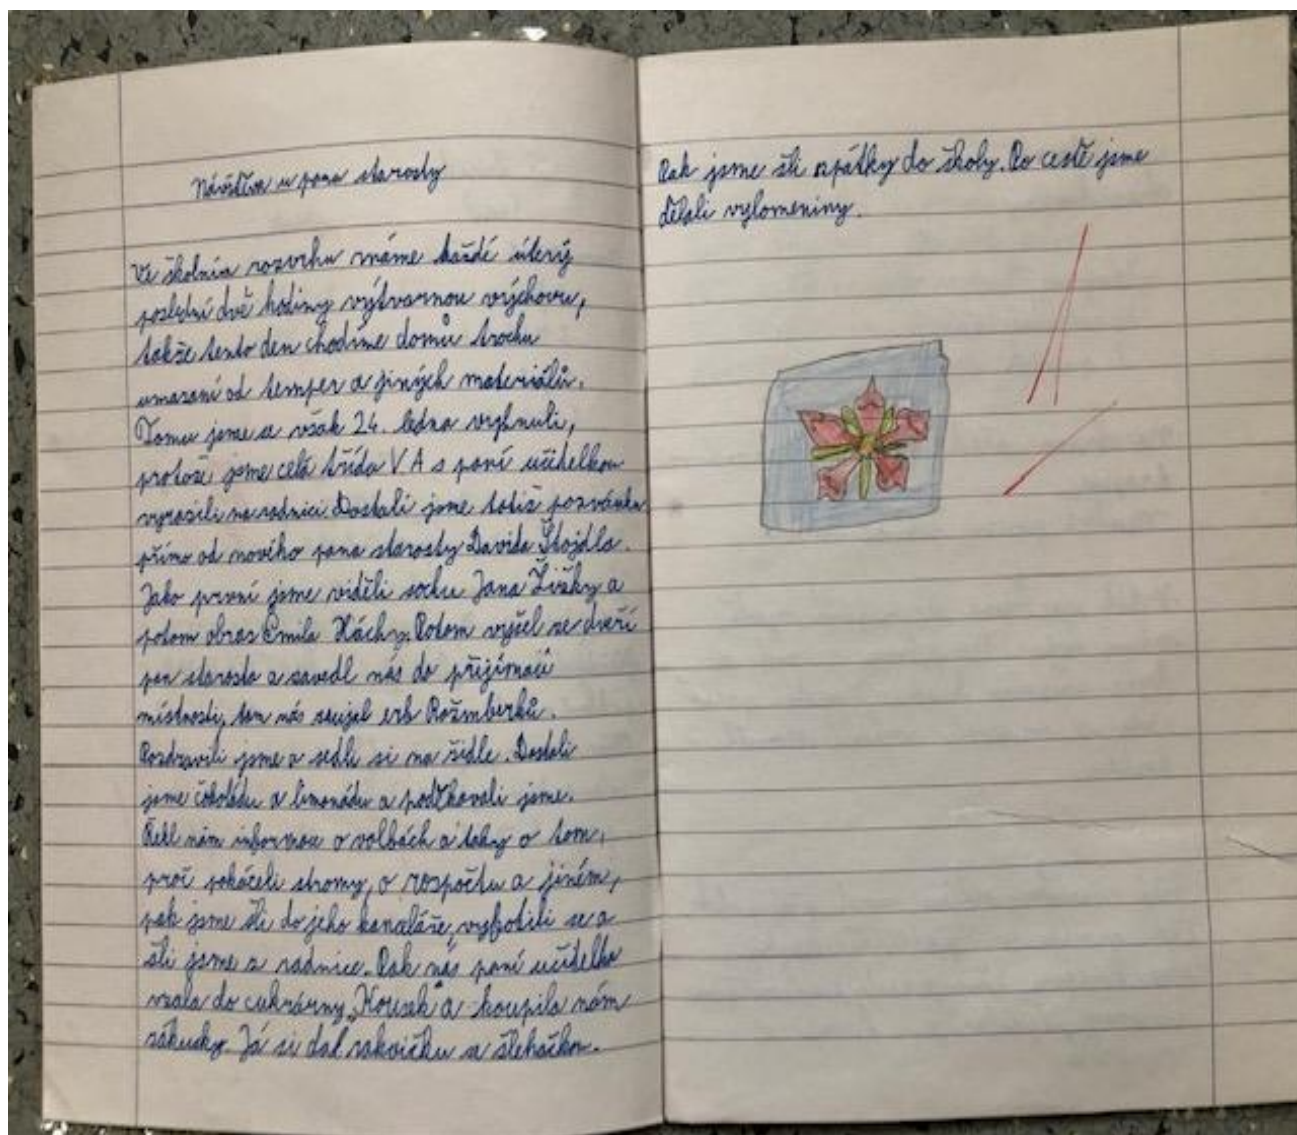 Návštěva u pana starosty
Ve školním rozvrhu máme každé úterý
poslední dvě hodiny výtvarnou výchovu,
takže tento den chodíme domů trochu
umazaní od temper a jiných materiálů.
Tomu jsme se však 24. ledna vyhnuli,
protože jsme celá třída V. A s paní učitelkou
vyrazili na radnici. Dostali jsme totiž pozvánku
přímo od nového pana starosty Davida Štojdla.
Jako první jsme viděli sochu Jana Žižky a
potom obraz Emila Háchy. Potom vyšel ze dveří
pan starosta a zavedl nás do přijímací
místnosti, tam nás zaujal erb Rožmberků.
Pozdravili jsme a sedli si na židle. Dostali
jsme čokoládu a limonádu a poděkovali jsme.
Řekl nám informace o volbách a taky o tom,
proč pokáceli stromy, o rozpočtu a jiném,
pak jsme šli do jeho kanceláře, vyfotili se a
šli jsme z radnice. Pak nás paní učitelka
vzala do cukrárny „Kousek" a koupila nám
zákusky. Já si dal rakvičku se šlehačkou.
Pak jsme šli zpátky do školy. Po cestě jsme
dělali vylomeniny.